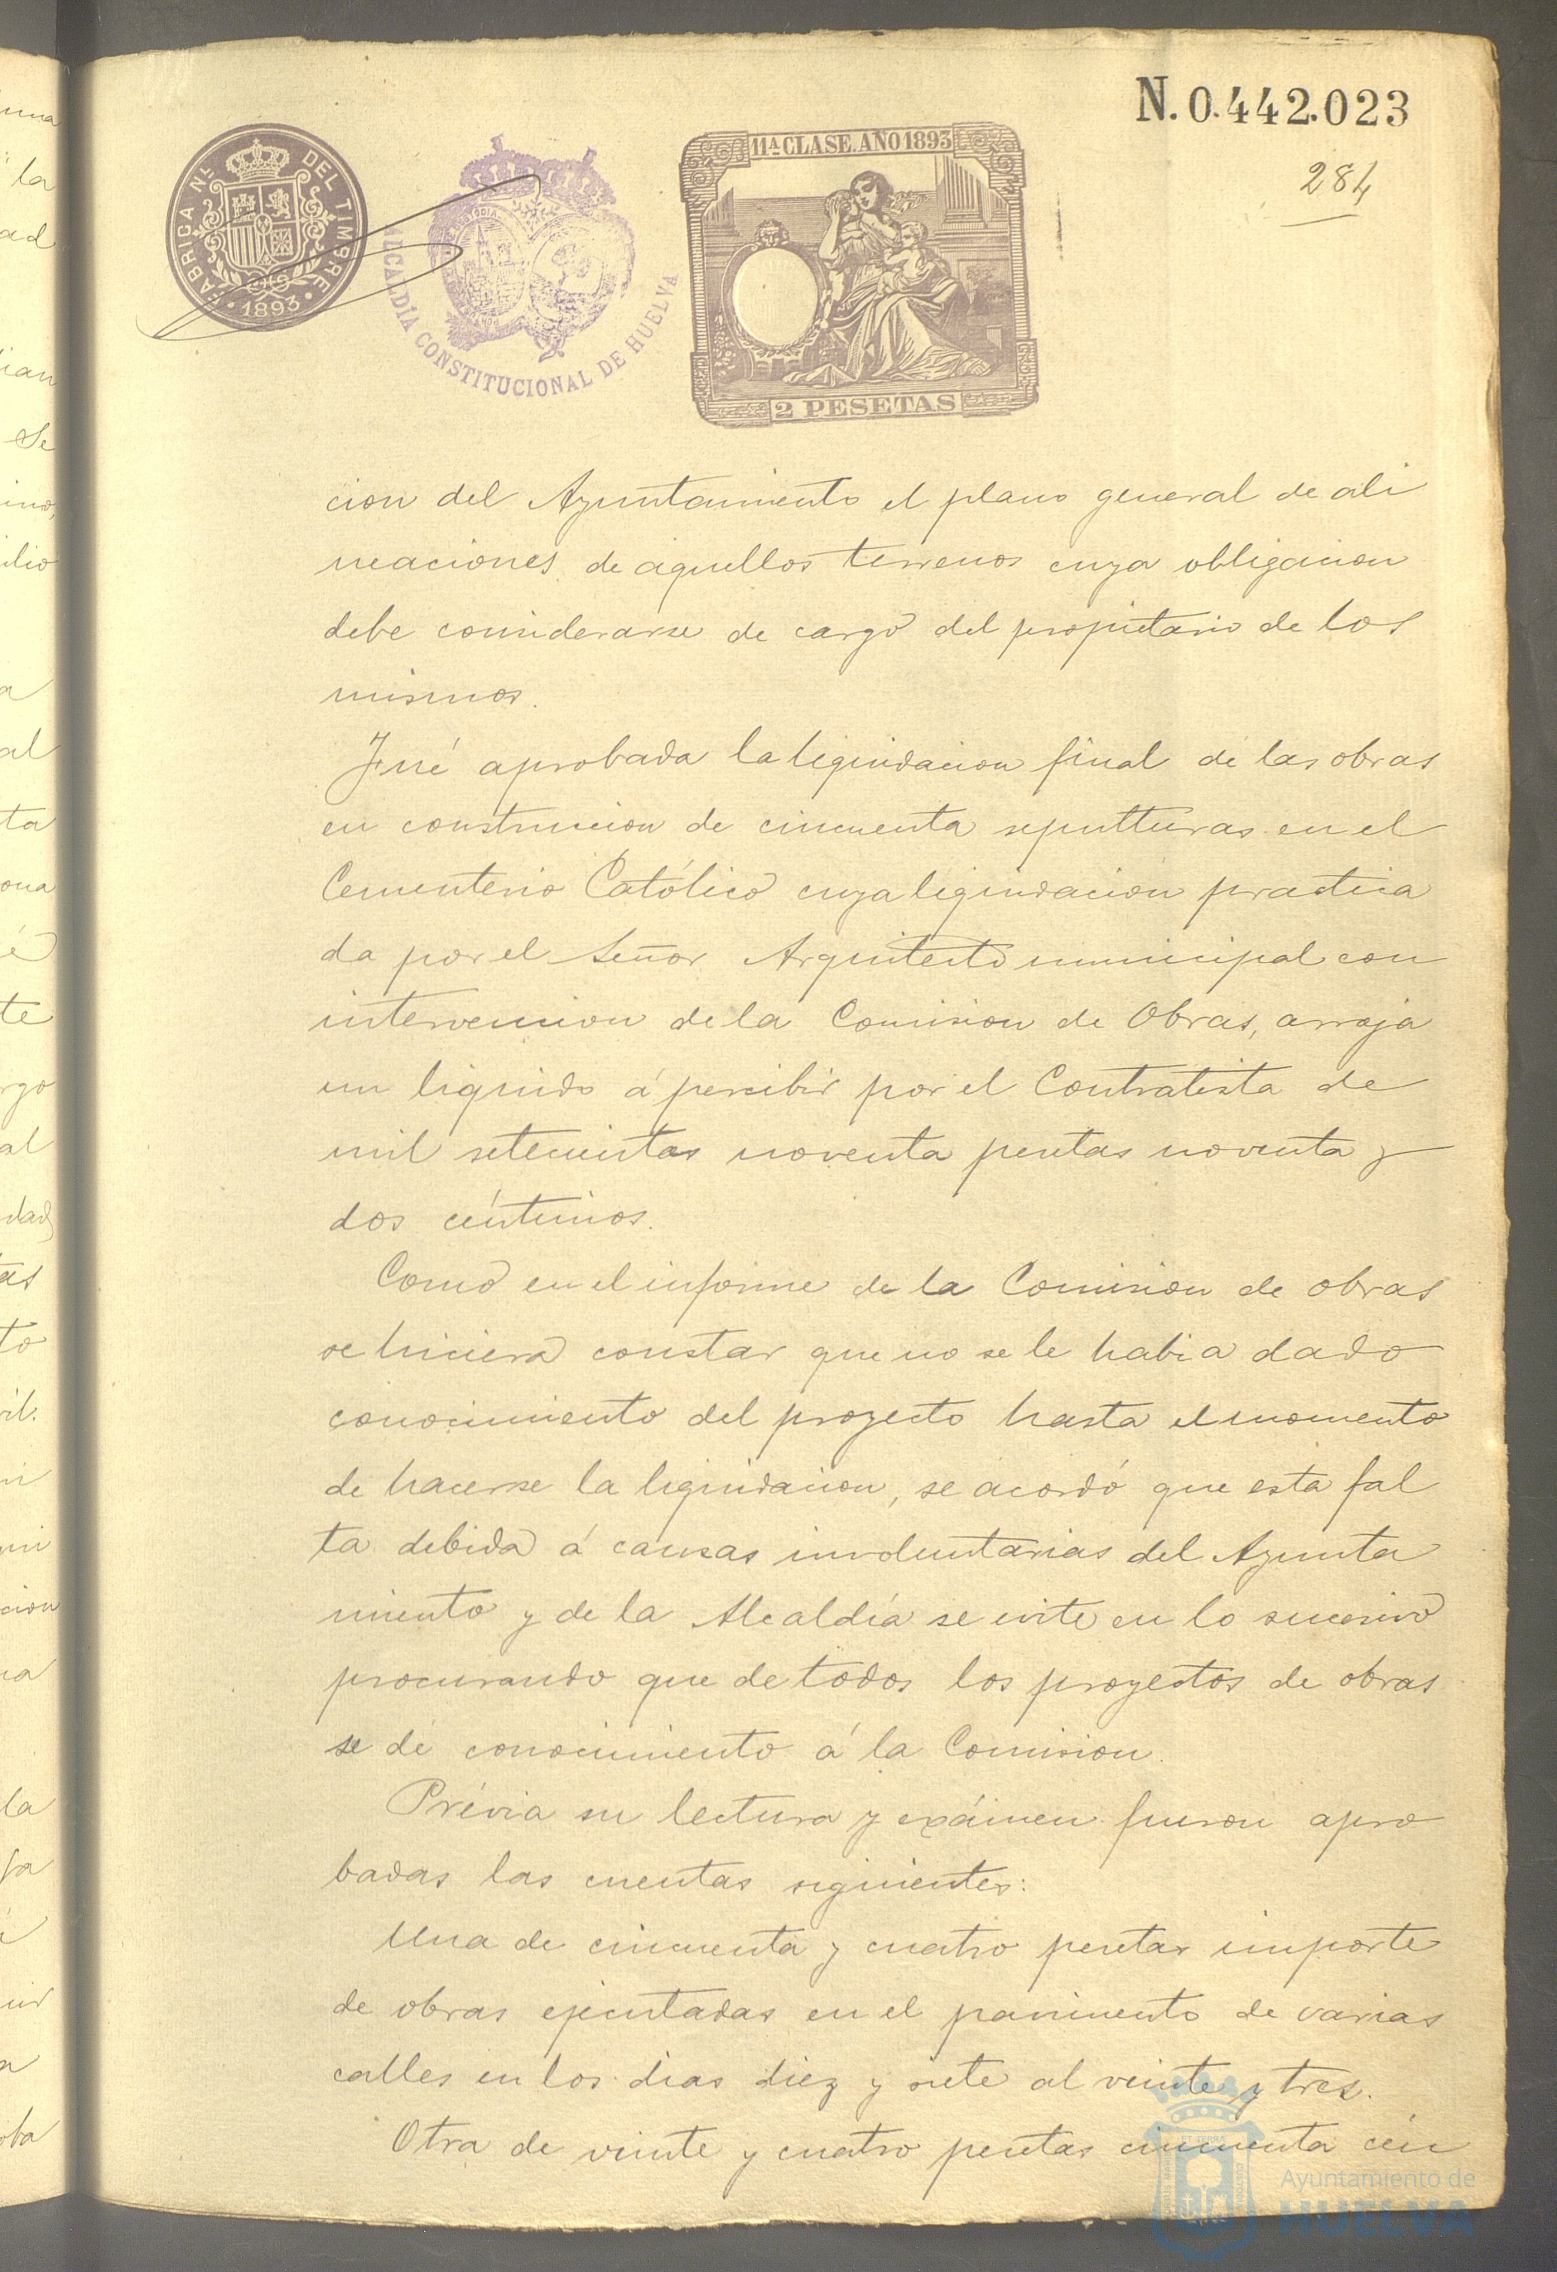 N. 0.442.023
284
FABRICA NL. DEL TIMBRE
1893
ALCALDÍA CONSTITUCIONAL DE HUELVA
11A CLASE. AÑO 1893
2 PESETAS
cion del Ayuntamiento el plano general de ali
neaciones de aquellos terrenos cuya obligacion
debe considerarse de cargo del propietario de los
mismos.
Fué aprobada la liquidacion final de las obras
en construccion de cincuenta sepulturas en el
Cementerio Católico cuya liquidacion practica
da por el Señor Arquitecto municipal con
intervencion de la Comision de Obras, arroja
un liquido á percibir por el Contratista de
mil setecientas noventa pesetas noventa y
dos céntimos.
Como en el informe de la Comision de obras
se hiciera constar que no se le habia dado
conocimiento del proyecto hasta el momento
de hacerse la liquidacion, se acordó que esta fal
ta debida á causas involuntarias del Ayunta
miento y de la Alcaldía se evite en lo sucesivo
procurando que de todos los proyectos de obras
se dé conocimiento á la Comision.
Prévia su lectura y exámen fueron apro
badas las cuentas siguientes:
Una de cincuenta y cuatro pesetas importe
de obras ejecutadas en el pavimento de varias
calles en los dias diez y siete al veinte y tres.
Otra de veinte y cuatro pesetas cincuenta cén
Ayuntamiento de
HUELVA